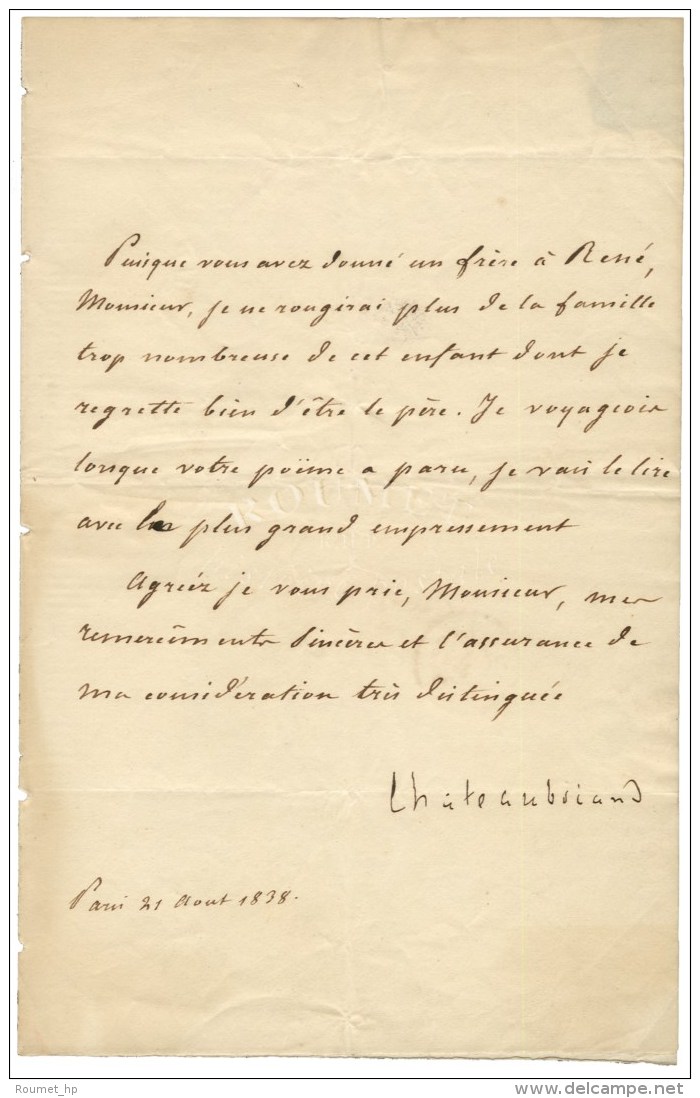 Puisque vous avez donné un frère à René,
Monsieur, je ne rougirai plus de la famille
trop nombreuse de cet enfant dont je
regrette bien d'être le père. Je voyageois
lorsque votre poëme a paru, je vais le lire
avec le plus grand empressement
Agréez je vous prie, Monsieur, mes
remerciments sincères et l'assurance de
ma considération très distinguée
Chateaubriand
Paris 21 Aout 1838.
ROUMET
Roumet_hp
delcampe.net